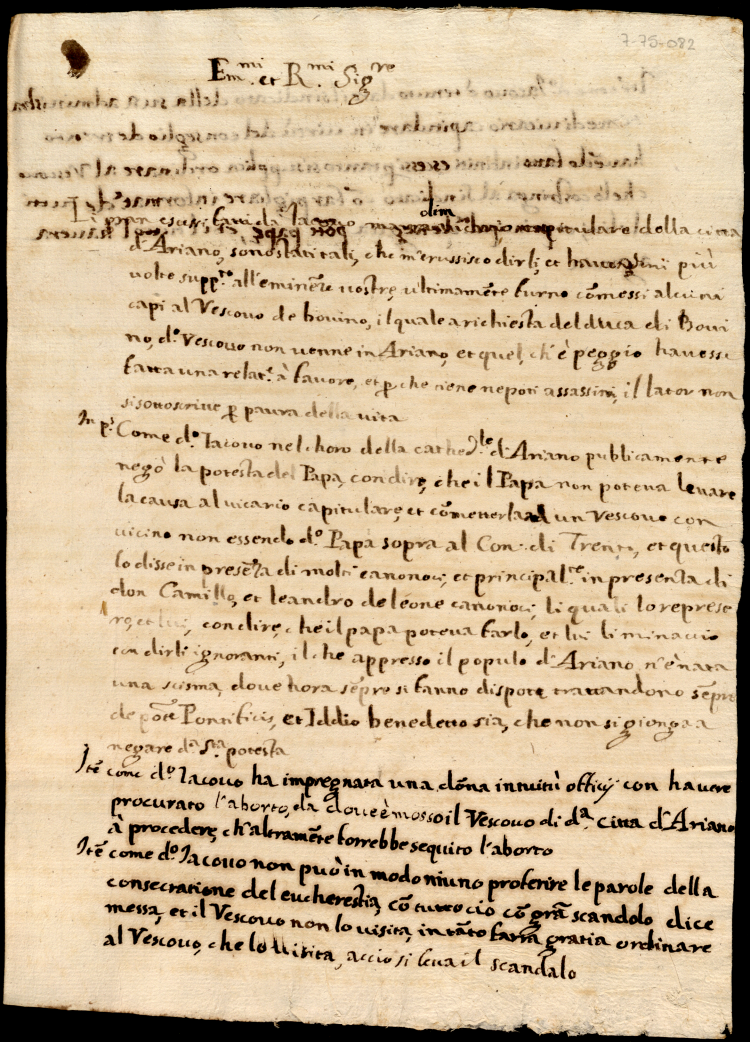 7-75-082
Em.mi et R.mi Sig.re
Li gran eccessi fatti da Iacovo olim vicario capitulare della citta
d'Ariano, sono stati tali, che m'erussisco dirli, et havendini più
volte supp.to all'eminenze vostre, ultimamẽte furno cõmessi alcuni
capi al Vescovo de bovino, il quale a richiesta del duca di Bovi
no, d.o Vescovo non venne in Ariano, et quel, ch'è peggio havesse
fatta una relat.e à favore, et p che tiene nepoti assassini, il lator non
si sottoscrive p paura della vita
In p.s Come d.o Iacovo nel choro della cathed.le d'Ariano publicamente
negò la potesta del Papa, con dire, che il Papa non poteva levare
la causa al vicario capitulare, et cõmetterla ad un Vescovo con
vicino non essendo d.o Papa sopra al Con. di Trento, et questo
lo disse in presẽza di molti canonoci, et principal.te in presenta di
don Camillo, et leandro de leone canonoci, li quali lo represe
ro, et lui, con dire, che il papa poteva farlo, et lui li minaccio
con dirli ignoranti, il che appresso il populo d'Ariano n'è nata
una scisma, dove hora sẽpre si fanno dispote trattandono sẽpre
de põte Pontificis, et Iddio benedetto sia, che non si gionga a
negare d.a S.ta potesta
Itẽ come d.o Iacovo ha impregnata una dõna intuitù officij con havere
procurato l'aborto, da dove è mosso il Vescovo di d.a citta d'Ariano
à procedere, ch'altramẽte forrebbe sequito l'aborto
Itẽ come d.o Iacovo non può in modo niuno proferire le parole della
consecratione del eucherestia, cõ tutto ciò cõ grã scandolo dice
messa, et il Vescovo non lo visita, in tãto farrã gratia ordinare
al Vescovo, che lo visita, acciò si leva il scandalo